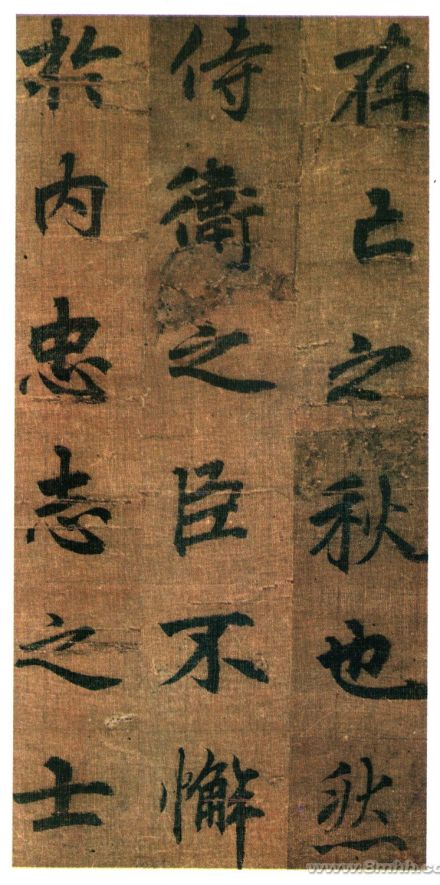 存亡之秋也然
侍衛之臣不懈
於內忠志之士
www.8mhh.co